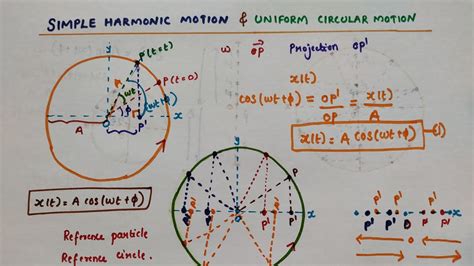 SIMPLE HARMONIC MOTION & UNIFORM CIRCULAR MOTION
y
P(t=t)
P(t=0)
A
ωt
φ
(ωt+φ)
A
O
P'
x
ω OP Projection OP'
x(t)
cos(ωt+φ) = OP' = x(t)
OP A
x(t) = A cos(ωt+φ) —①
x(t) = A cos(ωt+φ)
Reference particle
Reference circle.
y
P
O
P' P'
x
P' P' P' O P' P' P'
O
O